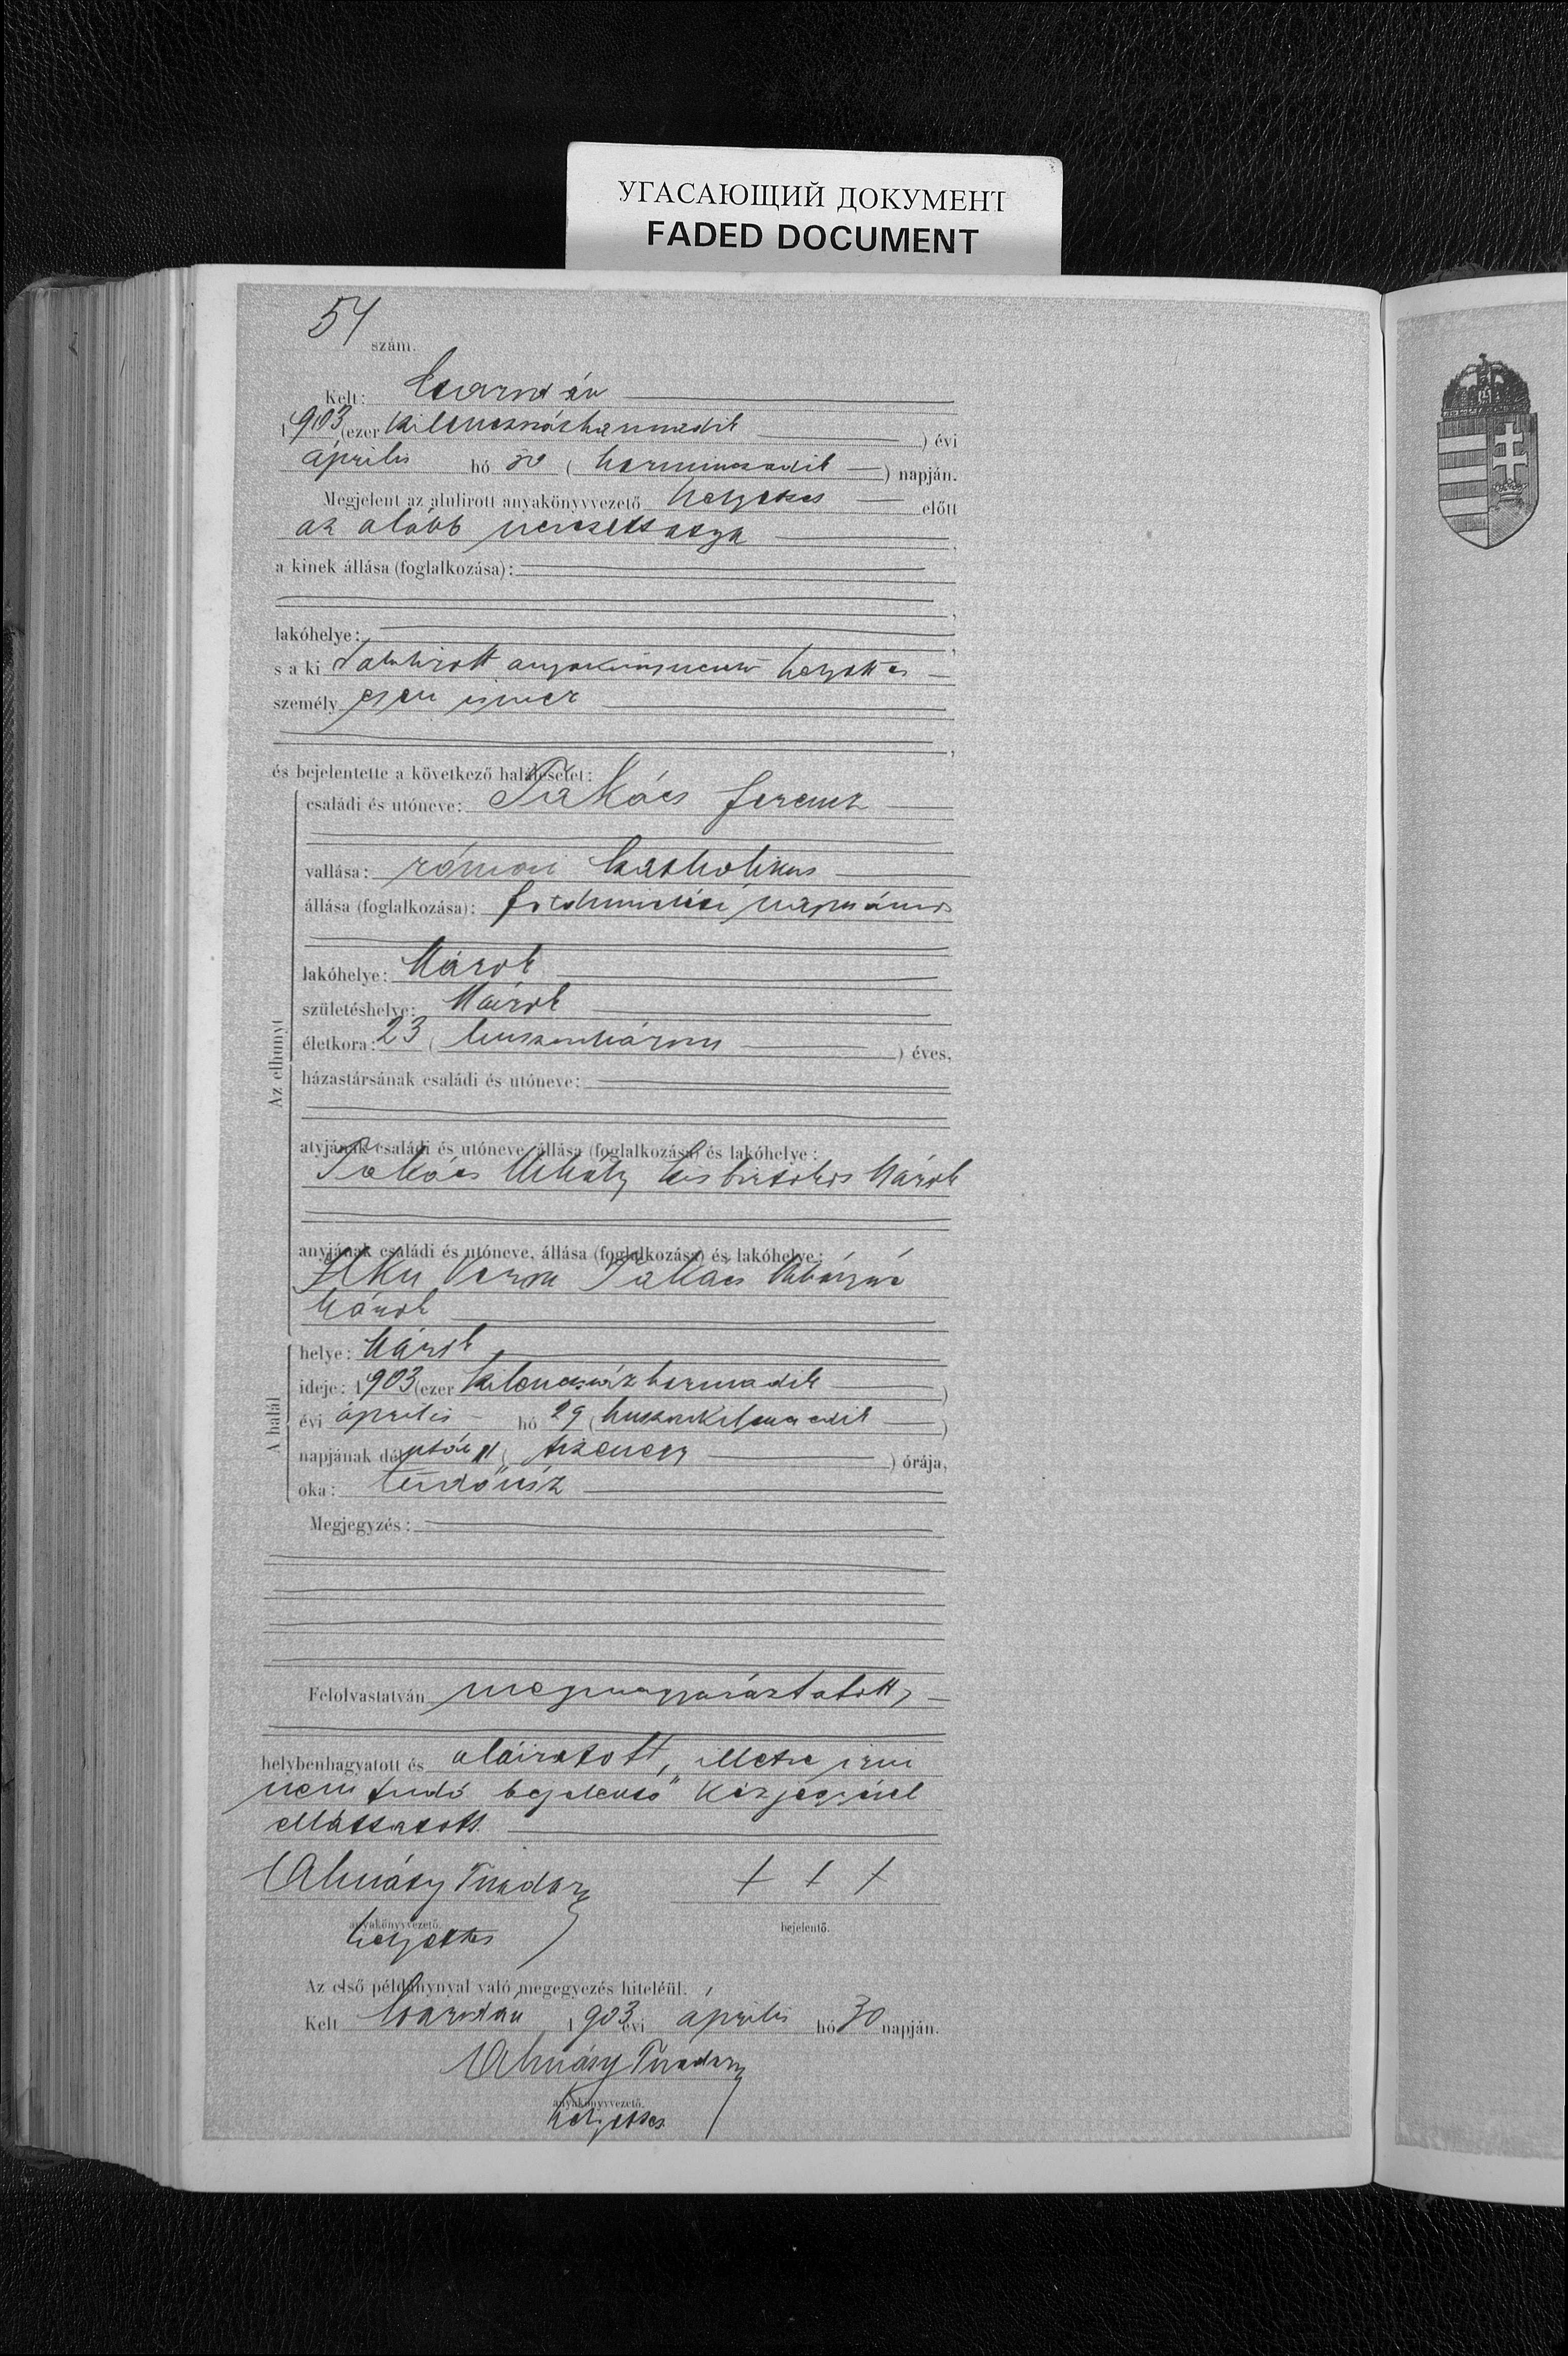 УГАСАЮЩИЙ ДОКУМЕНТ
FADED DOCUMENT
54 szám.
Kelt: Csarodán
1903 (ezer kilencszázharmadik) évi
április hó 30 (harminczadik) napján.
Megjelent az alulirott anyakönyvvezető helyettes előtt
az alább nevezett
a kinek állása (foglalkozása):
lakóhelye:
s a ki alulirott anyakönyvvezető helyettes
személyesen ismer
és bejelentette a következő halálesetet:
Az elhunyt
családi és utóneve: Takács Ferencz
vallása: római katholikus
állása (foglalkozása): földmivelési napszámos
lakóhelye: Márok
születéshelye: Márok
életkora: 23 (huszonhárom) éves,
házastársának családi és utóneve:
atyjának családi és utóneve, állása (foglalkozása) és lakóhelye:
Takács Mihály kisbirtokos Márok
anyjának családi és utóneve, állása (foglalkozása) és lakóhelye:
Ilku Veron Takács Mihályné
Márok
A halál
helye: Márok
ideje: 1903 (ezer kilenczszázharmadik)
évi április hó 29 (huszonkilenczedik)
napjának délután 11 (tizenegy) órája,
oka: tüdővész
Megjegyzés:
Felolvastatván megmagyaráztatott,
helybenhagyatott és aláiratott, illetve irni
nem tudó bejelentő kézjegyével
elláttatott.
Almásy Tivadar + + +
anyakönyvvezető. bejelentő.
helyettes
Az első példánynyal való megegyezés hiteléül.
Kelt Csarodán, 1903 évi április hó 30 napján.
Almásy Tivadar
anyakönyvvezető.
helyettes